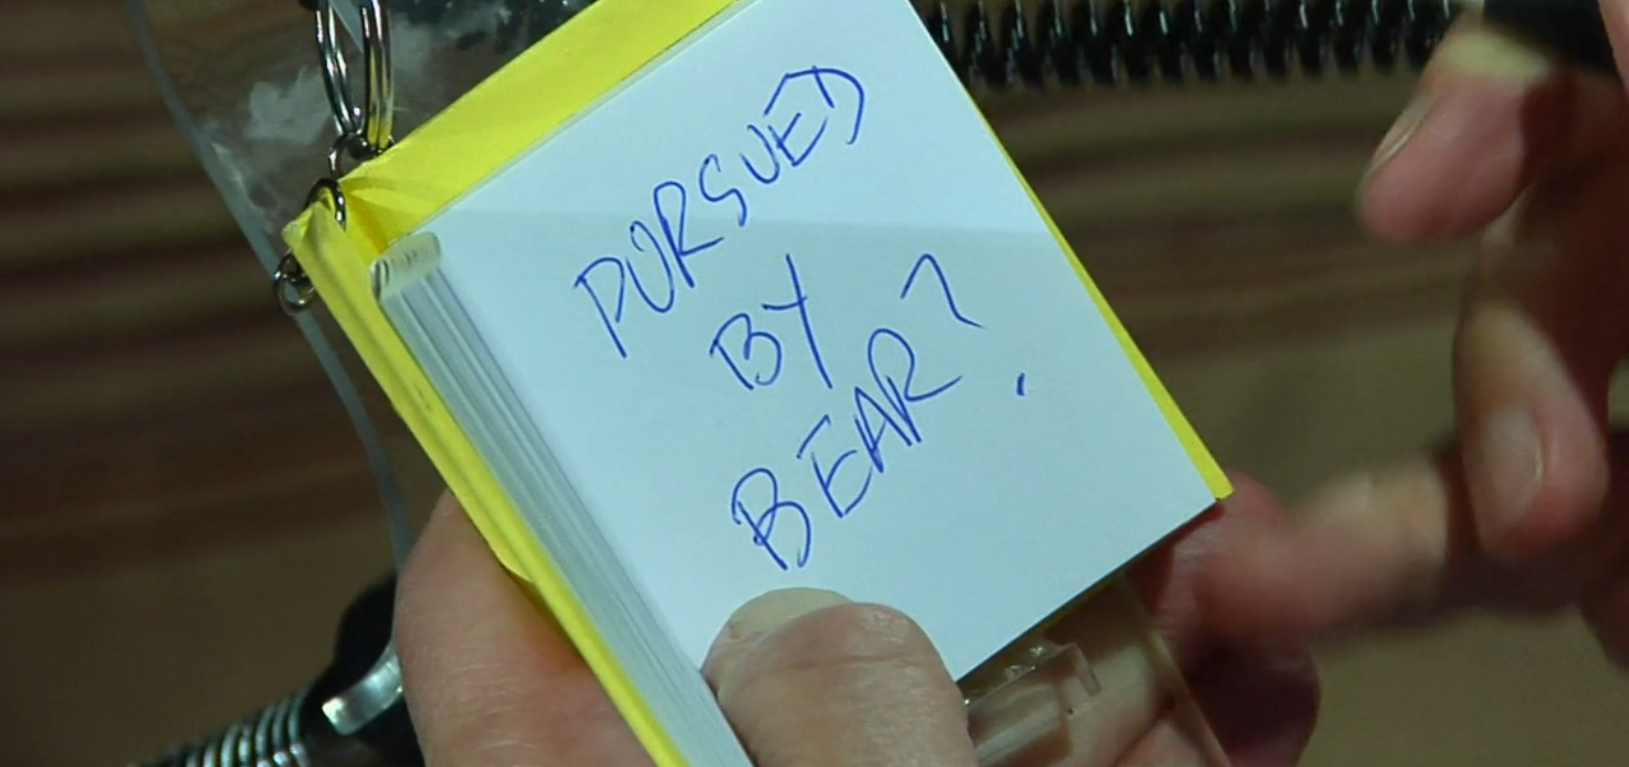 PURSUED
BY
BEAR?